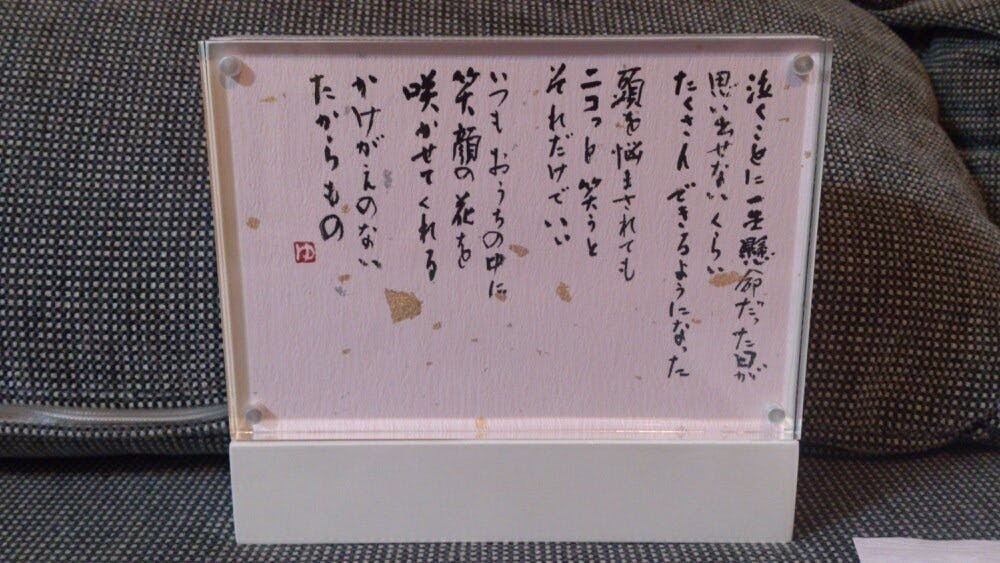 泣くことに一生懸命だった日が
思い出せないくらい
たくさんできるようになった
頭を悩まされても
ニコッと笑うと
それだけでいい
いつもおうちの中に
笑顔の花を
咲かせてくれる
かけがえのない
たからもの
ゆ